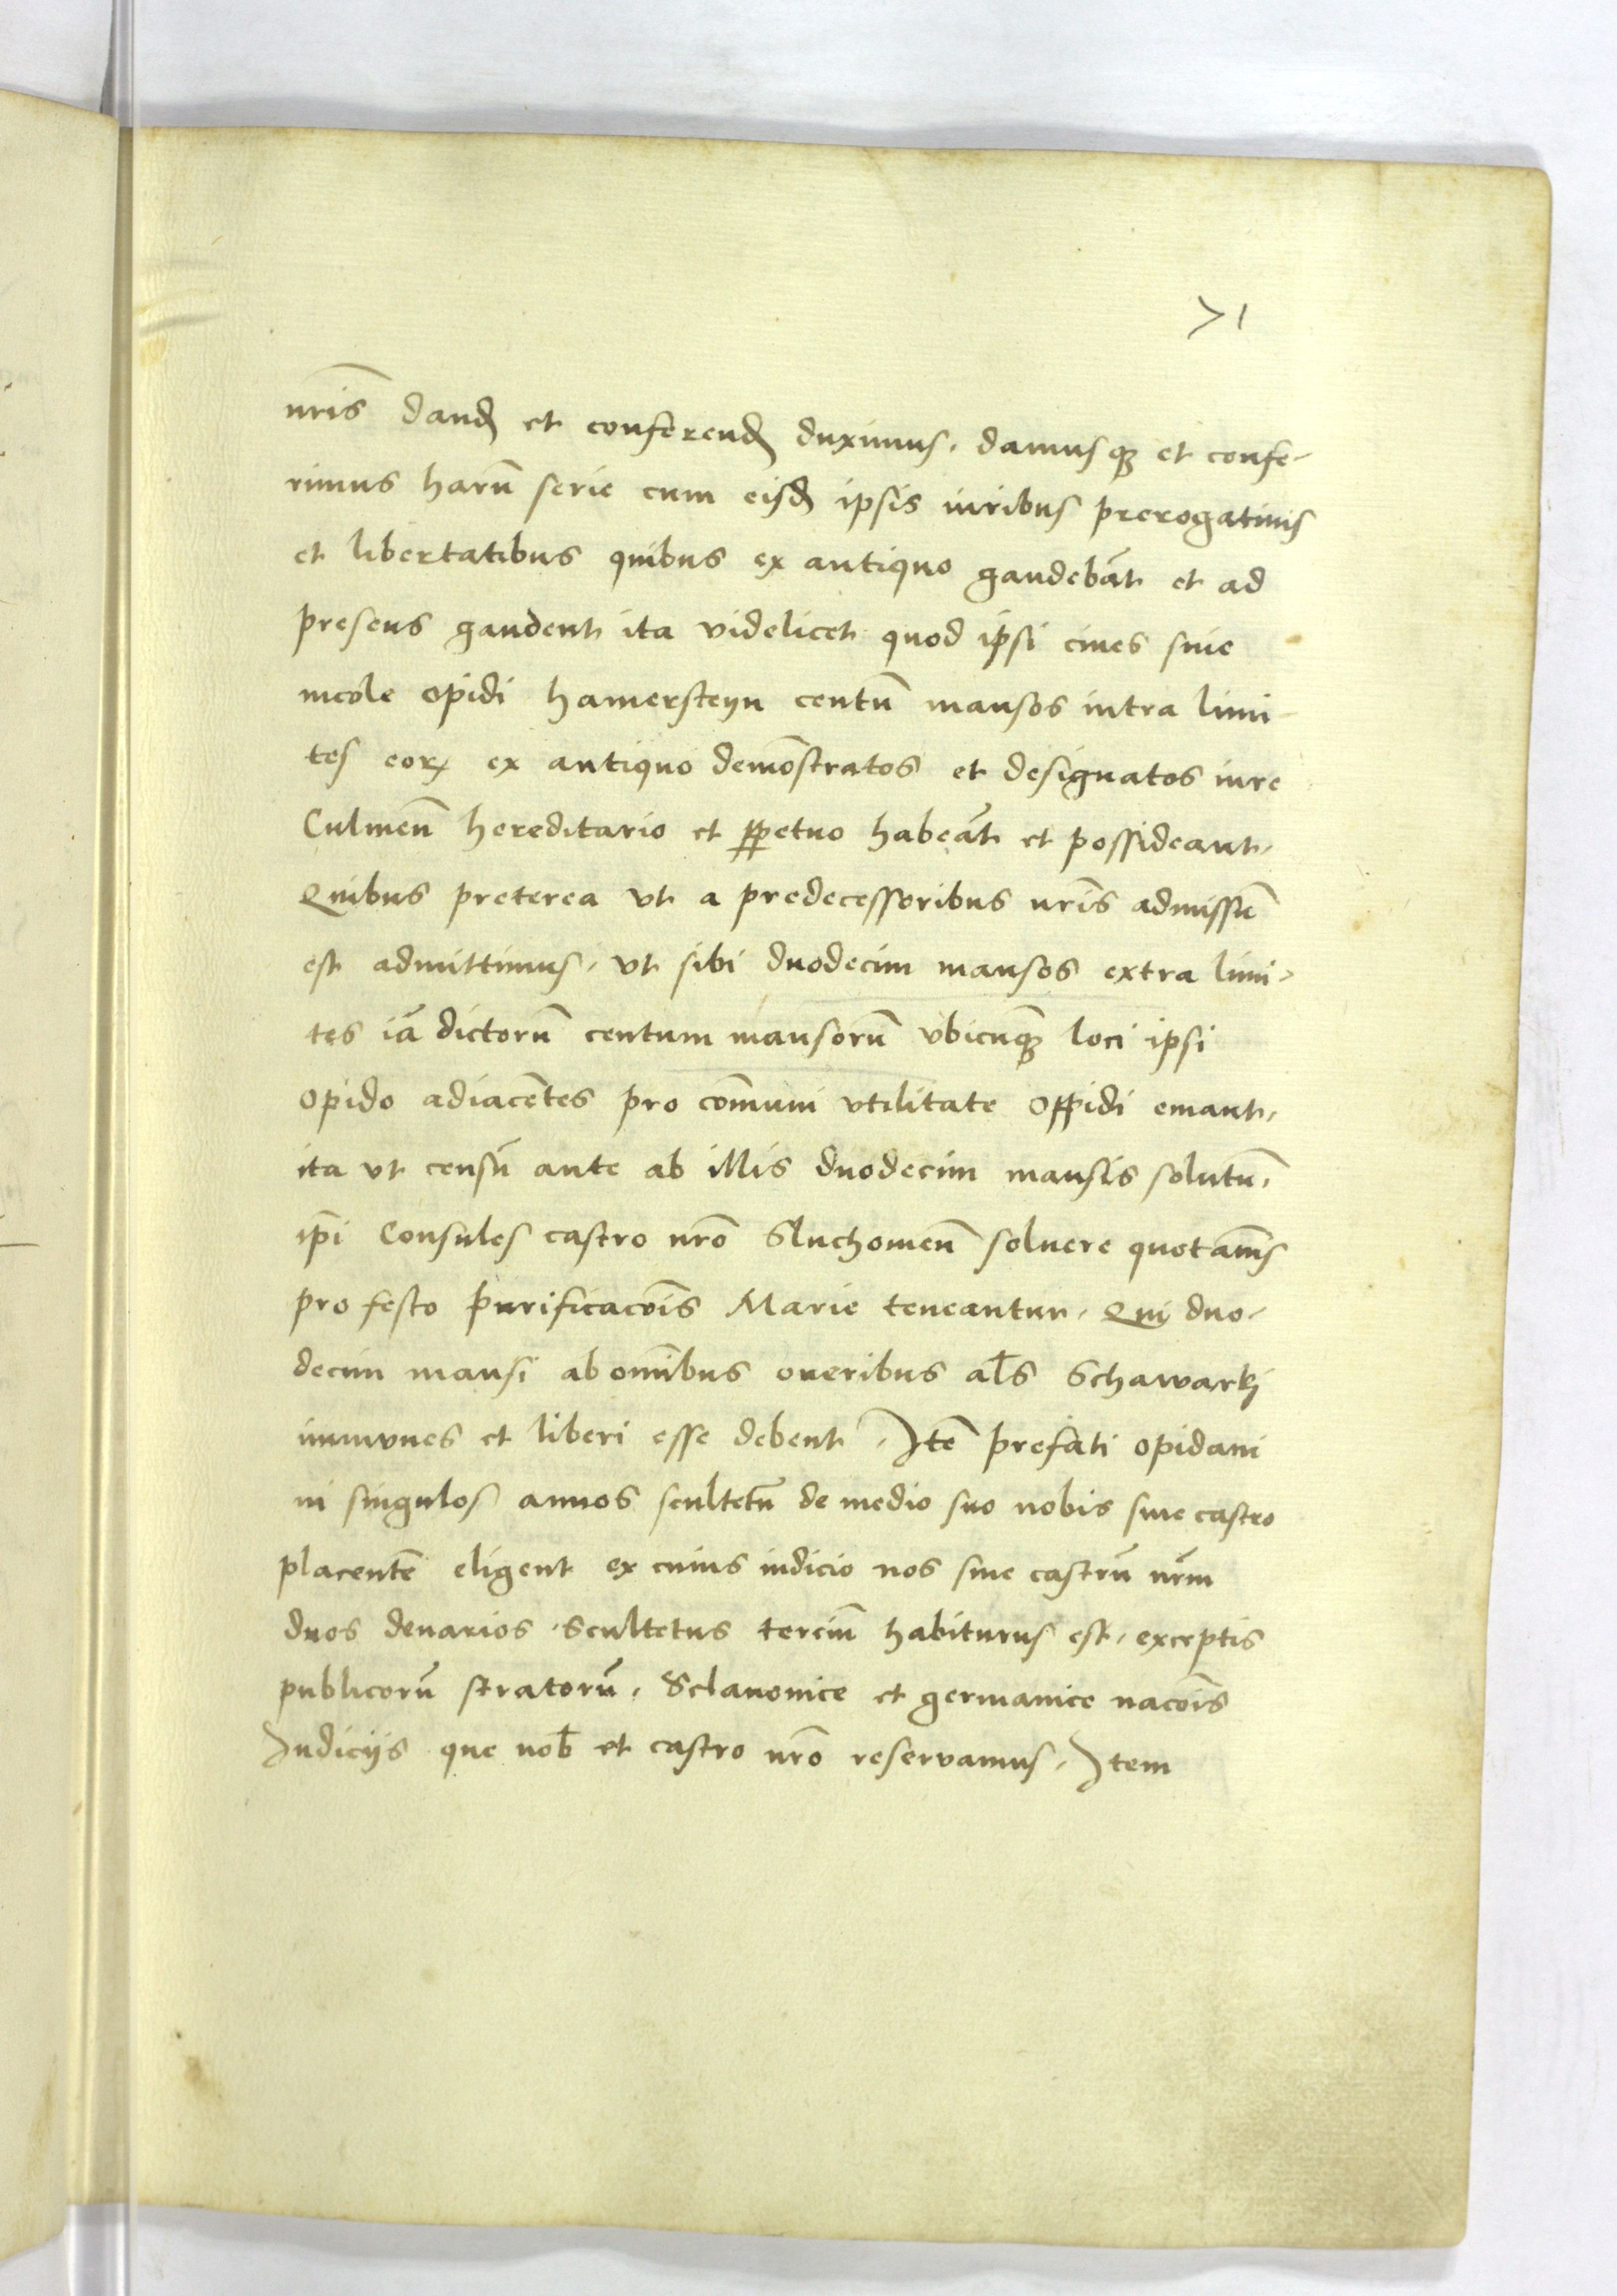 71
nr̄is dand et conferend duximus. damusqꝫ et confe-
rimus harū serie cum eisd ipsis iuribus prerogatiuis
et libertatibus quibus ex antiquo gaudebāt et ad
presens gaudent ita videlicet quod ipsi ciues siue
incole opidi hamersteyn centū mansos intra limi-
tes eoꝝ ex antiquo demōstratos et designatos iure
Culmen̄ hereditario et ꝑpetuo habeāt et possideant.
Quibus preterea vt a predecessoribus nr̄is admissū
est admittimus. vt sibi duodecim mansos extra limi-
tes iā dictorū centum mansorū vbicūqꝫ loci ipsi
opido adiacētes pro com̄uni vtilitate oppidi emant.
ita vt censū ante ab illis duodecim mansis solutū.
ip̄i Consules castro nr̄o Sluchomen̄ soluere quotan̄is
pro festo purificacōis Marie teneantur. Qui duo-
decim mansi ab om̄ibus oneribus al̄s Schawarkj
immunes et liberi esse debent. Itē prefati opidani
in singulos annos scultetū de medio suo nobis siue castro
placentē eligent ex cuius iudicio nos siue castrū nr̄m
duos denarios. Scultetus terciū habiturus est. exceptis
publicorū stratorū. Sclauonice et germanice nacōis
Iudicijs que nob̄ et castro nr̄o reservamus. Item